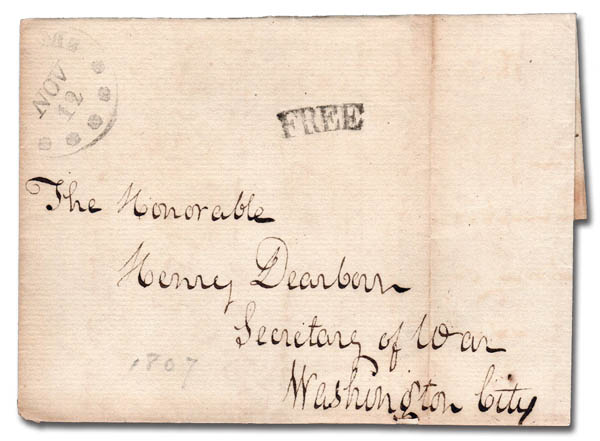 NOV
12
FREE
The Honorable
Henry Dearborn
Secretary of War
Washington City
1807